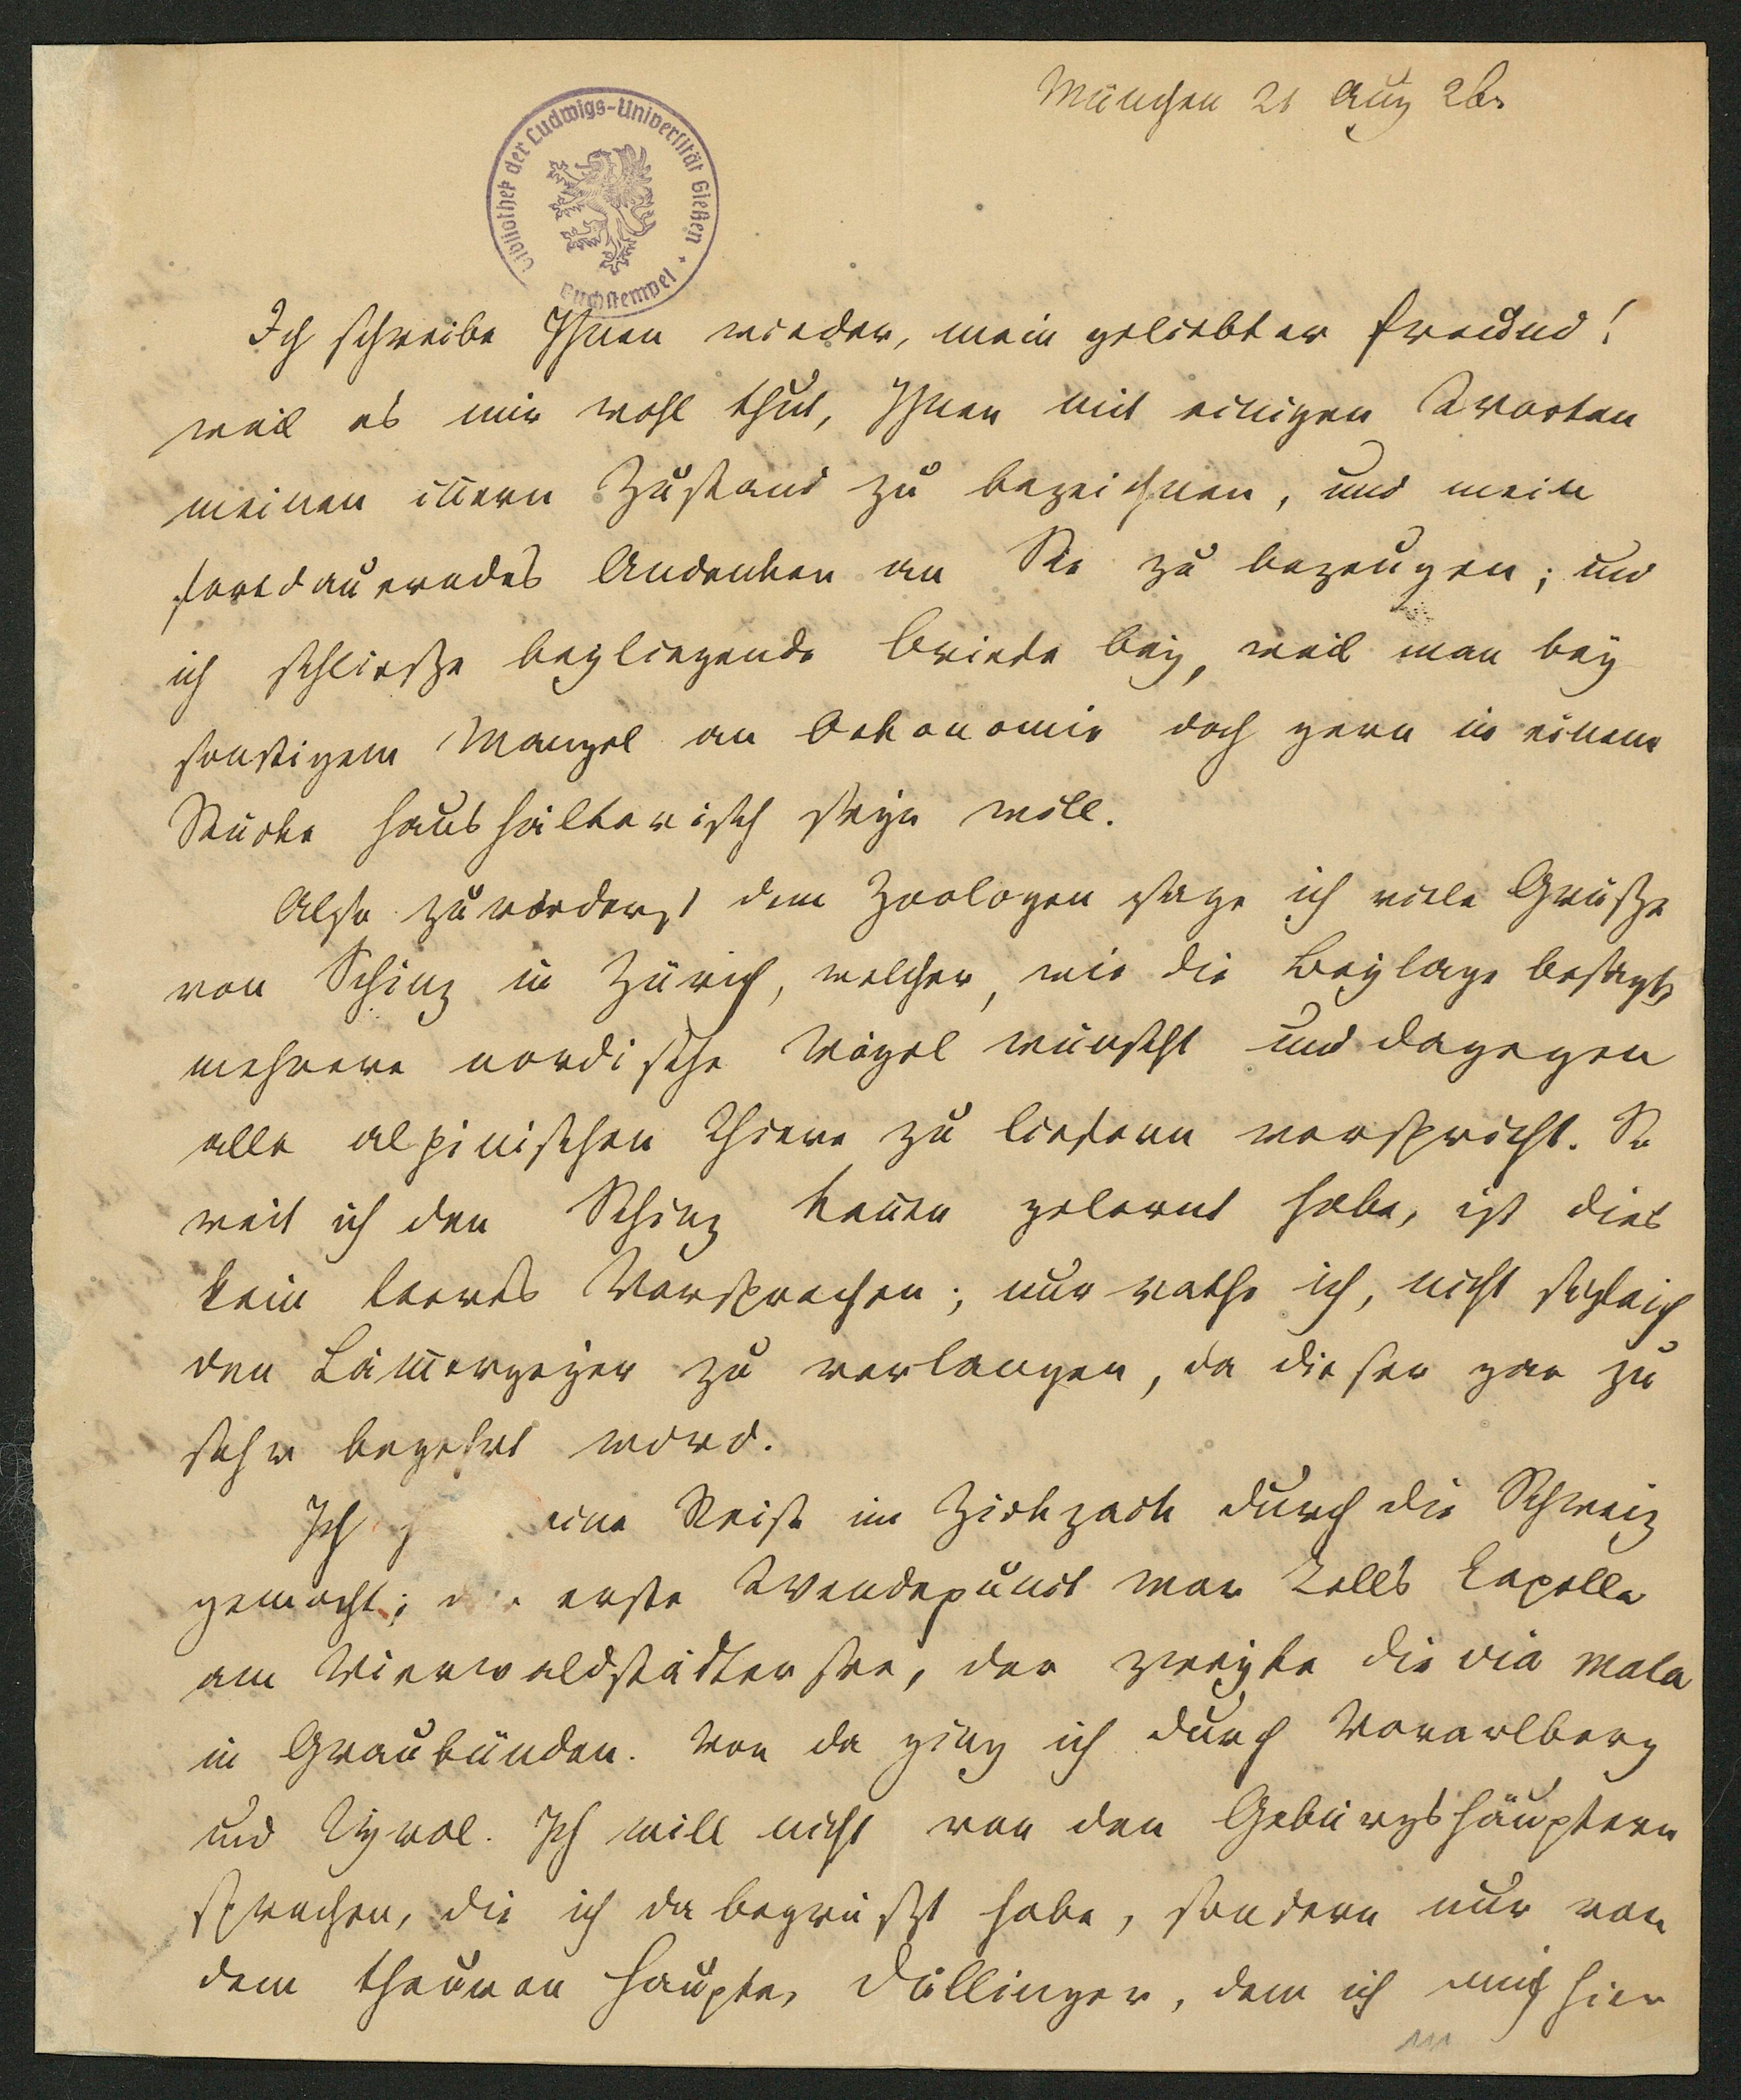 München 21 Aug 26.
Bibliothek der Ludwigs-Universität Gießen
Buchstempel
Ich schreibe Ihnen wieder, mein geliebter Freund!
weil es mir wohl thut, Ihnen mit einigen Worten
meinen innern Zustand zu bezeichnen, und mein
fortdauerndes Andenken an Sie zu bezeugen; und
ich schließe beyliegende Briefe bey, weil man bey
sonstigem Mangel an Oekonomie doch gern in einem
Stücke haushälterisch seyn will.
Also zuvörderst dem Zoologen sage ich viele Grüße
von Schinz in Zürich, welcher, wie die Beylage besagt,
mehrere nordische Vögel wünscht und dagegen
alle alpinischen Thiere zu liefern verspricht. So
weit ich den Schinz kennen gelernt habe, ist dies
kein leeres Versprechen; nur rathe ich, nicht sogleich
den Lämmergeyer zu verlangen, da dieser gar zu
sehr begehrt wird.
Ich eine Reise im Zickzack durch die Schweiz
gemacht; erste Wendepunct war Tells Capelle
am Vierwaldstädter See, der zweyte die via mala
in Graubünden. Von da ging ich durch Vorarlberg
und Tyrol. Ich will nicht von den Gebürgshäuptern
sprechen, die ich da begrüßt habe, sondern nur von
dem theuren Haupte, Döllinger, dem ich mich hier